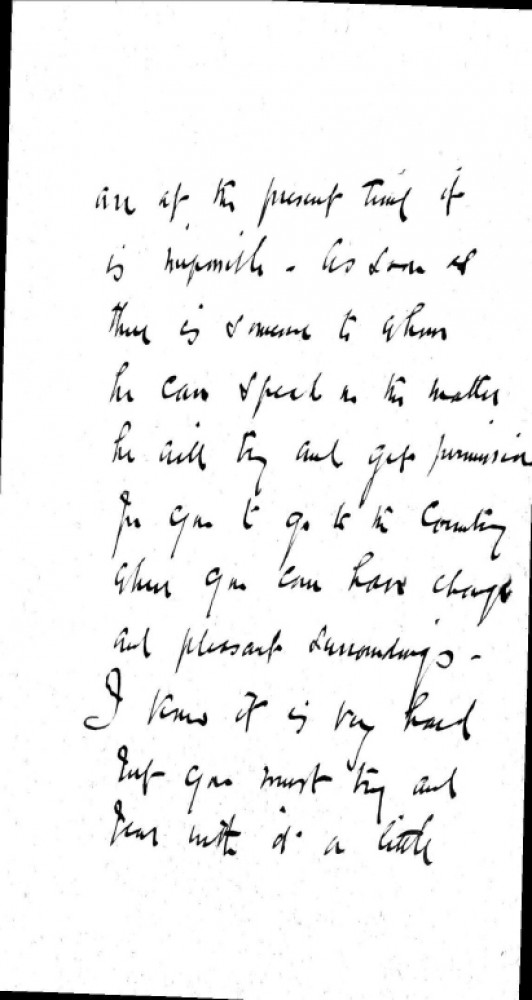 are at the present time it
is impossible - As soon as
there is someone to whom
he can speak in the matter
he will try and get permission
for you to go to the Country
where you can have change
and pleasant surroundings -
I know it is very hard
but you must try and
bear with it a little